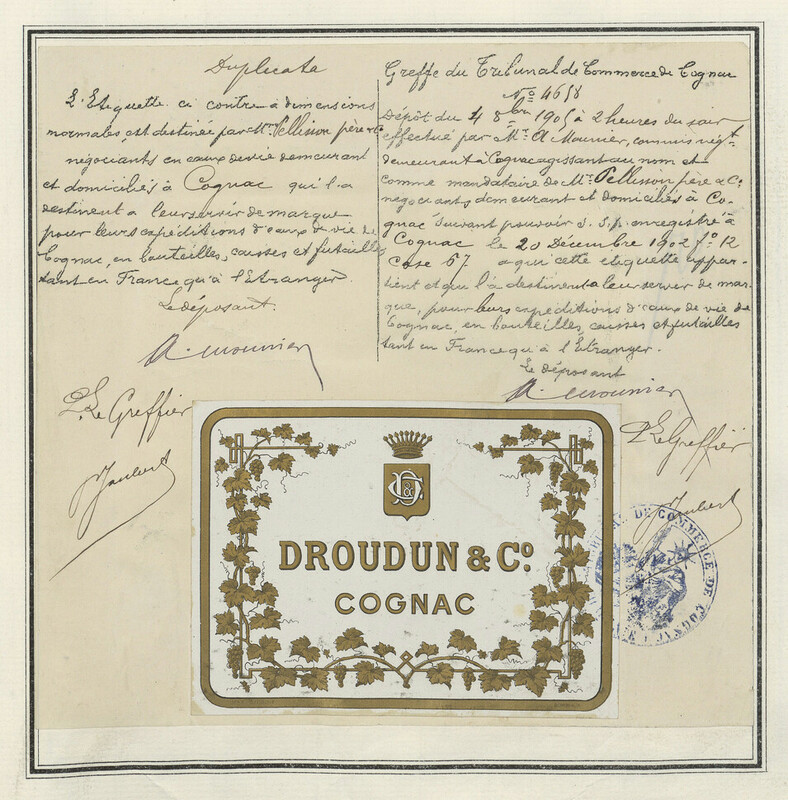 Duplicata
L'Etiquette ci contre à dimensions
normales, est destinée par Mrs Pellisson père & Co
négociants en eaux de vie demeurant
et domiciliés à Cognac qui l'a
destinent a leur servir de marque
pour leurs expéditions d'eaux de vie de
Cognac, en bouteilles, caisses et futailles
tant en France qu'à l'Etranger.
Le déposant.
A. Mounier
P. Le Greffier
Joubert
Greffe du Tribunal de Commerce de Cognac
No 4658
Dépôt du 4 8bre 1905 à 2 heures du soir
effectué par Mr. A Mounier, commis négt.
demeurant à Cognac agissant au nom et
comme mandataire de Mrs Pellisson père & Co
négociants demeurant et domiciliés à Co-
gnac suivant pouvoir S.S.p. enregistré à
Cognac le 20 Décembre 1902 fo 12
Case 67. a qui cette etiquette appar-
tient et qui l'à destinent a leur servir de mar-
que, pour leurs expéditions d'eaux de vie de
Cognac, en bouteilles, caisses et futailles
tant en France qu'à l'Etranger.
Le déposant
A. Mounier
P. Le Greffier
Joubert
D & C
DROUDUN & Co.
COGNAC
DE COMMERCE DE COGNAC